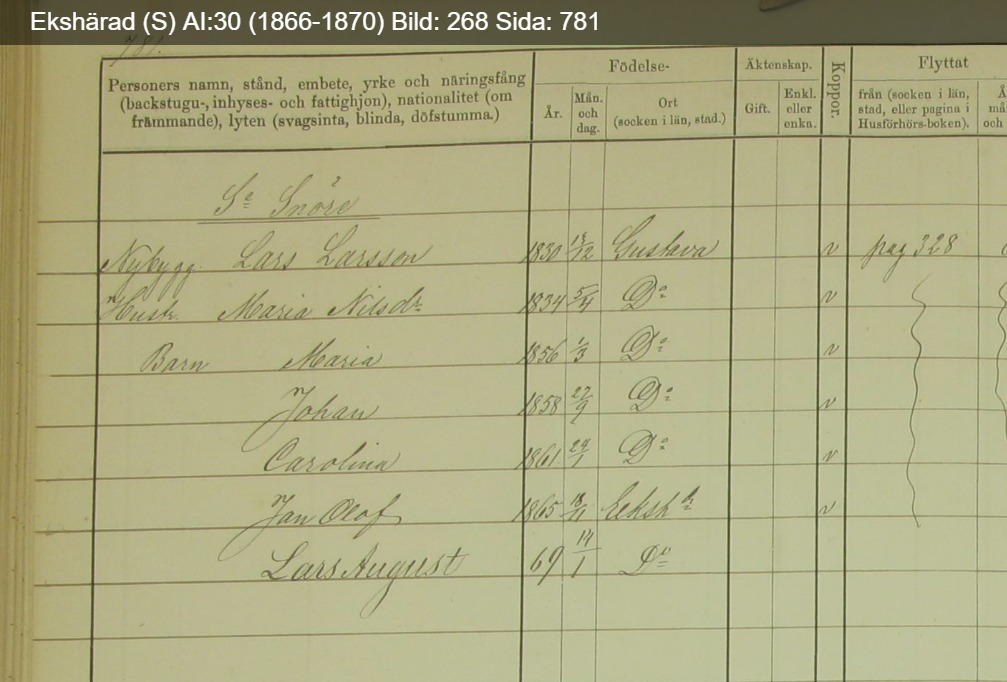 Ekshärad (S) AI:30 (1866-1870) Bild: 268 Sida: 781
781.
Personers namn, stånd, embete, yrke och näringsfång (backstugu-, inhyses- och fattighjon), nationalitet (om främmande), lyten (svagsinta, blinda, döfstumma.) Födelse- År. Mån. och dag. Ort (socken i län, stad.) Äktenskap. Gift. Enkl. eller enka. Koppor. Flyttat från (socken i län, stad, eller pagina i Husförhörs-boken). Å må och
Sa Snöre
Nybygg. Lars Larsson 1830 18/12 Gustava v pag 328
Hustr. Maria Nilsdr 1834 5/4 Do v
Barn Maria 1856 1/3 Do v
Johan 1858 27/9 Do v
Carolina 1861 29/1 Do v
Jan Olof 1865 18/11 Ekshd v
Lars August 69 14/1 Do